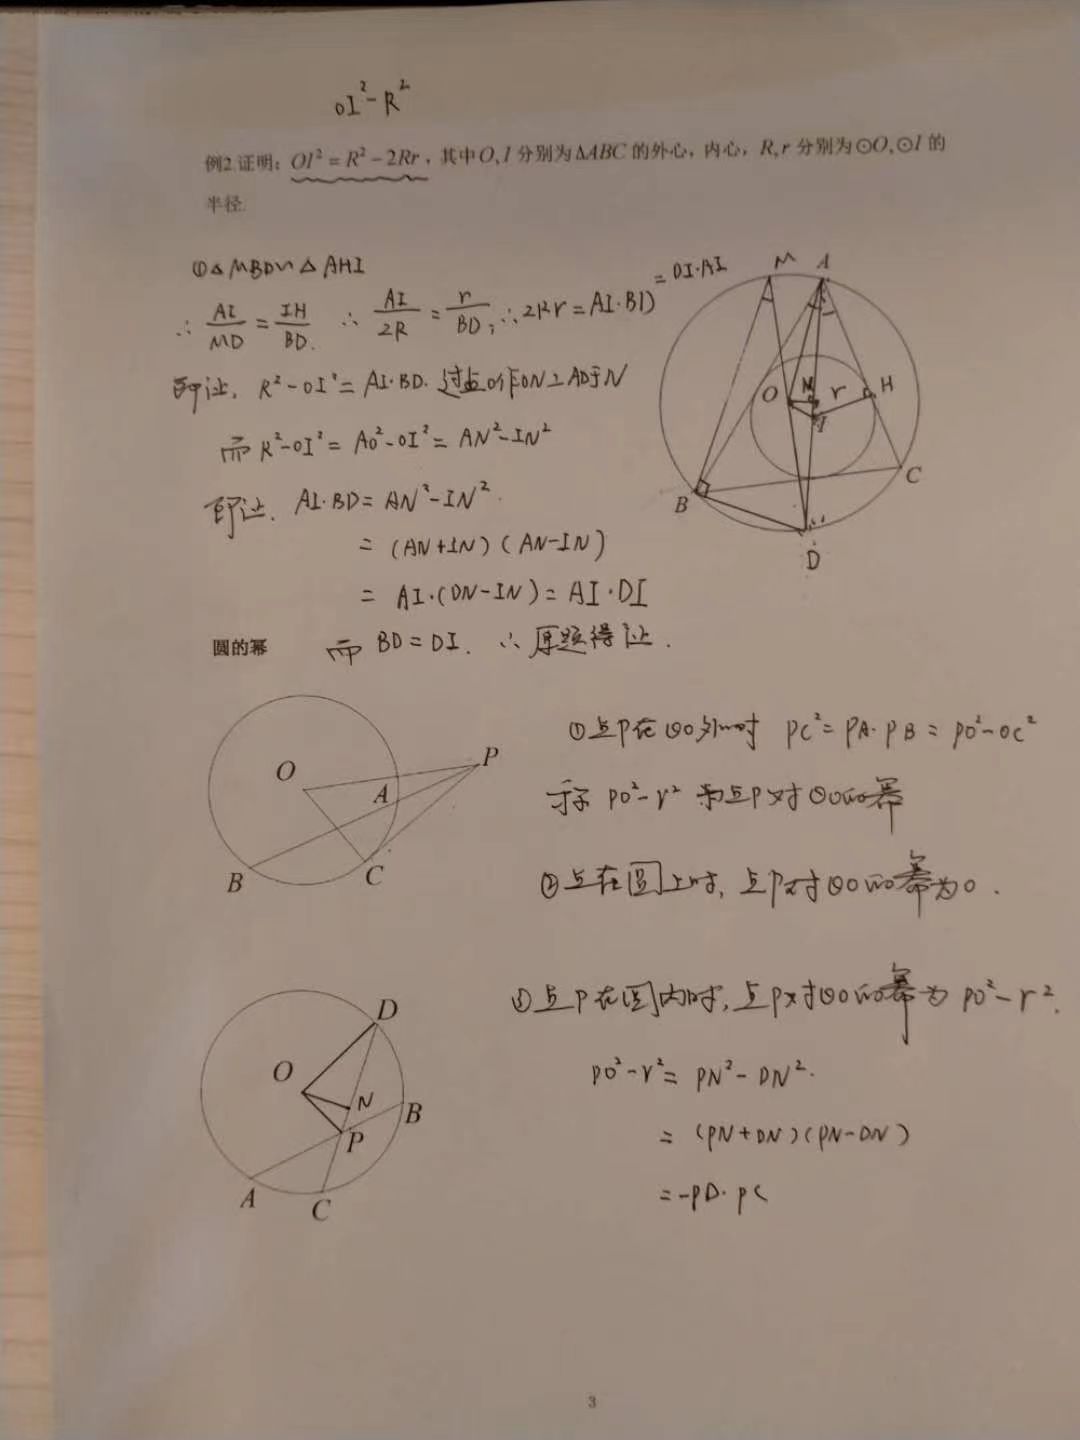 OI²-R²
例2.证明：OI²=R²-2Rr，其中O,I分别为ΔABC的外心，内心，R,r分别为⊙O,⊙I的
半径.
①△MBD∽△AHI
∴ AI/MD = IH/BD. ∴ AI/2R = r/BD, ∴2Rr=AI·BD =DI·AI
即证, R²-OI²=AI·BD. 过点O作ON⊥AD于N
而 R²-OI²=AO²-OI²=AN²-IN²
即证. AI·BD=AN²-IN².
=(AN+IN)(AN-IN)
=AI·(DN-IN)=AI·DI
而 BD=DI. ∴原题得证.
M A
O N r H
I
B C
D
圆的幂
①点P在⊙O外时 PC²=PA·PB=PO²-OC²
于示 PO²-r² 为点P对⊙O的幂
②点在圆上时, 点P对⊙O的幂为0.
O A P
B C
③点P在圆内时, 点P对⊙O的幂为 PO²-r².
PO²-r²=PN²-DN².
=(PN+DN)(PN-DN)
=-PD·PC
D
O N B
P
A C
3